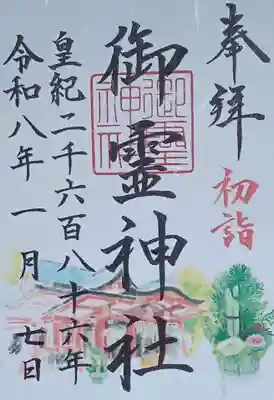 奉拝
初詣
御靈神社
御靈神社
皇紀二千六百八十六年
令和八年一月七日